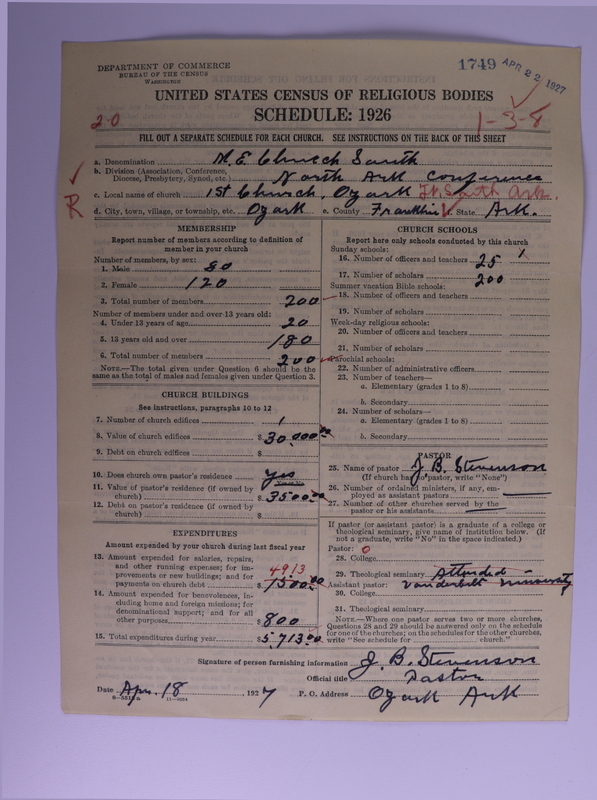 DEPARTMENT OF COMMERCE
BUREAU OF THE CENSUS
WASHINGTON
1749 APR 22 1927
UNITED STATES CENSUS OF RELIGIOUS BODIES
SCHEDULE: 1926
20
1-3-8
FILL OUT A SEPARATE SCHEDULE FOR EACH CHURCH. SEE INSTRUCTIONS ON THE BACK OF THIS SHEET
a. Denomination M.E. Church South
b. Division (Association, Conference, Diocese, Presbytery, Synod, etc.) North Ark Conference
R
c. Local name of church 1st Church, Ozark Ft. Smith Ark.
d. City, town, village, or township, etc. Ozark e. County Franklin State Ark.
MEMBERSHIP
Report number of members according to definition of member in your church
Number of members, by sex:
1. Male 80
2. Female 120
3. Total number of members 200
Number of members under and over 13 years old:
4. Under 13 years of age 20
5. 13 years old and over 180
6. Total number of members 200
NOTE.—The total given under Question 6 should be the same as the total of males and females given under Question 3.
CHURCH BUILDINGS
See instructions, paragraphs 10 to 12
7. Number of church edifices 1
8. Value of church edifices $30,000.00
9. Debt on church edifices $
10. Does church own pastor's residence yes
11. Value of pastor's residence (if owned by church) $3500.00
12. Debt on pastor's residence (if owned by church) $
EXPENDITURES
Amount expended by your church during last fiscal year
13. Amount expended for salaries, repairs, and other running expenses; for improvements or new buildings; and for payments on church debt 4913 $
14. Amount expended for benevolences, including home and foreign missions; for denominational support; and for all other purposes $800
15. Total expenditures during year $5,713.00
CHURCH SCHOOLS
Report here only schools conducted by this church
Sunday schools:
16. Number of officers and teachers 25
17. Number of scholars 200
Summer vacation Bible schools:
18. Number of officers and teachers
19. Number of scholars
Week-day religious schools:
20. Number of officers and teachers
21. Number of scholars
Parochial schools:
22. Number of administrative officers
23. Number of teachers—
a. Elementary (grades 1 to 8)
b. Secondary
24. Number of scholars—
a. Elementary (grades 1 to 8)
b. Secondary
PASTOR
25. Name of pastor J. B. Stevenson
(If church has no pastor, write "None")
26. Number of ordained ministers, if any, employed as assistant pastors
27. Number of other churches served by the pastor or his assistants
If pastor (or assistant pastor) is a graduate of a college or theological seminary, give name of institution below. (If not a graduate, write "No" in the space indicated.)
Pastor: 0
28. College
29. Theological seminary Attended
Assistant pastor: Vanderbilt University
30. College
31. Theological seminary
NOTE.—Where one pastor serves two or more churches, Questions 28 and 29 should be answered only on the schedule for one of the churches; on the schedules for the other churches, write "See schedule for church."
Signature of person furnishing information J. B. Stevenson
Official title Pastor
Date Apr. 18, 1927 P. O. Address Ozark Ark